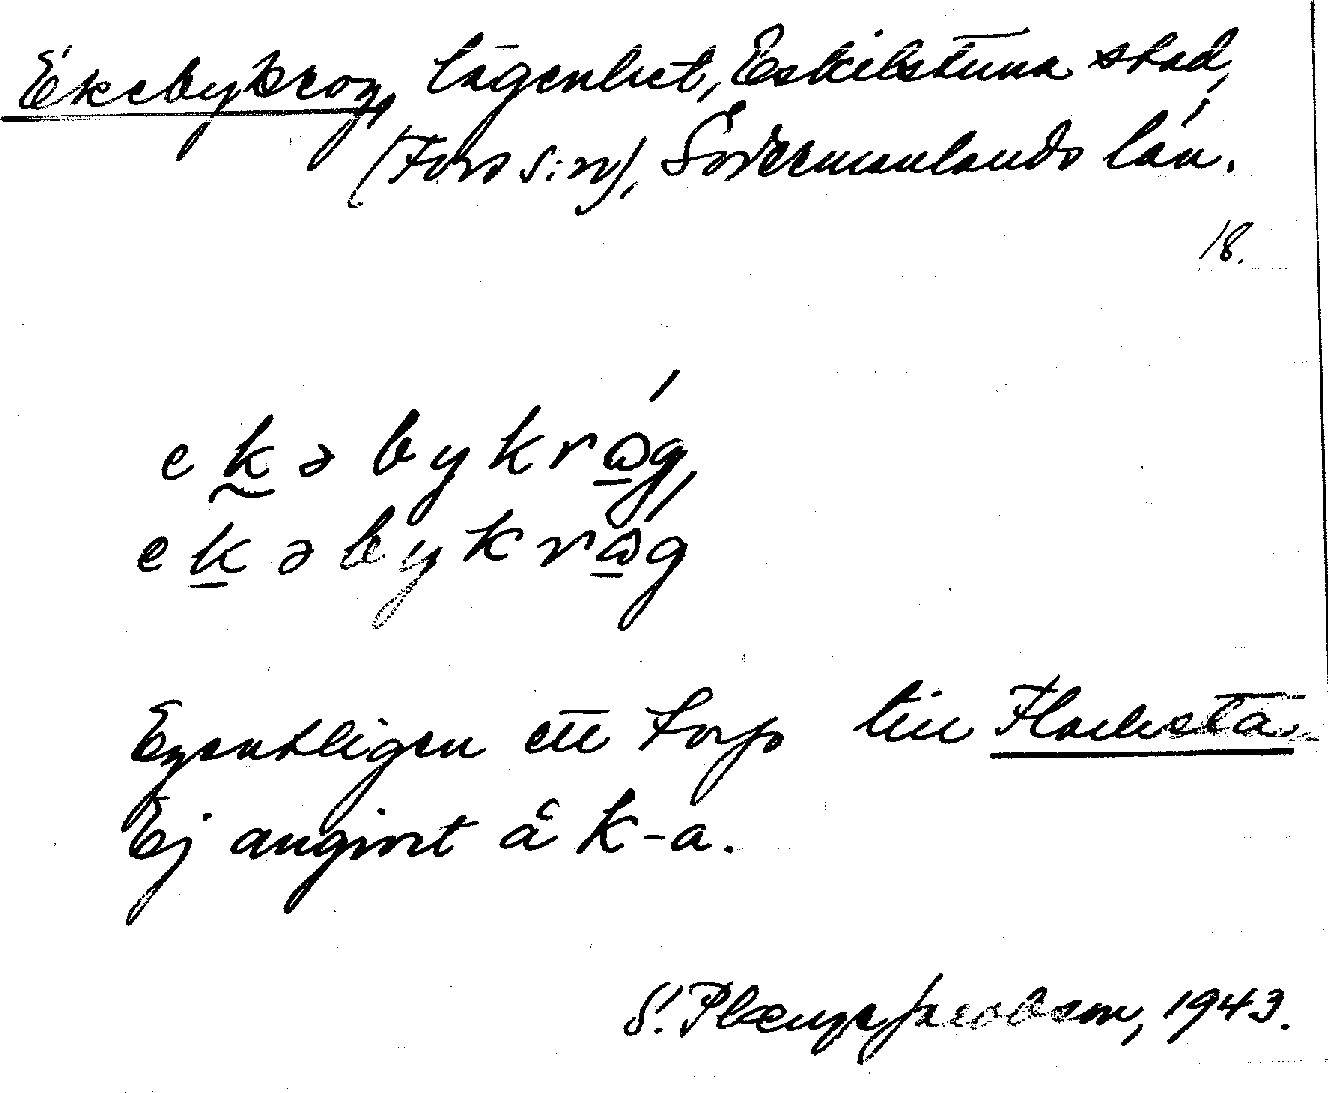 Ekebykrog, lägenhet, Eskilstuna stad,
(Fors s:n), Södermanlands län.
18.
ekəbykrɷ́g,
ekəbykrɷ́g
Egentligen ett torp till Flacksta
Ej angivet å k-a.
S. Plænge Jacobson, 1943.